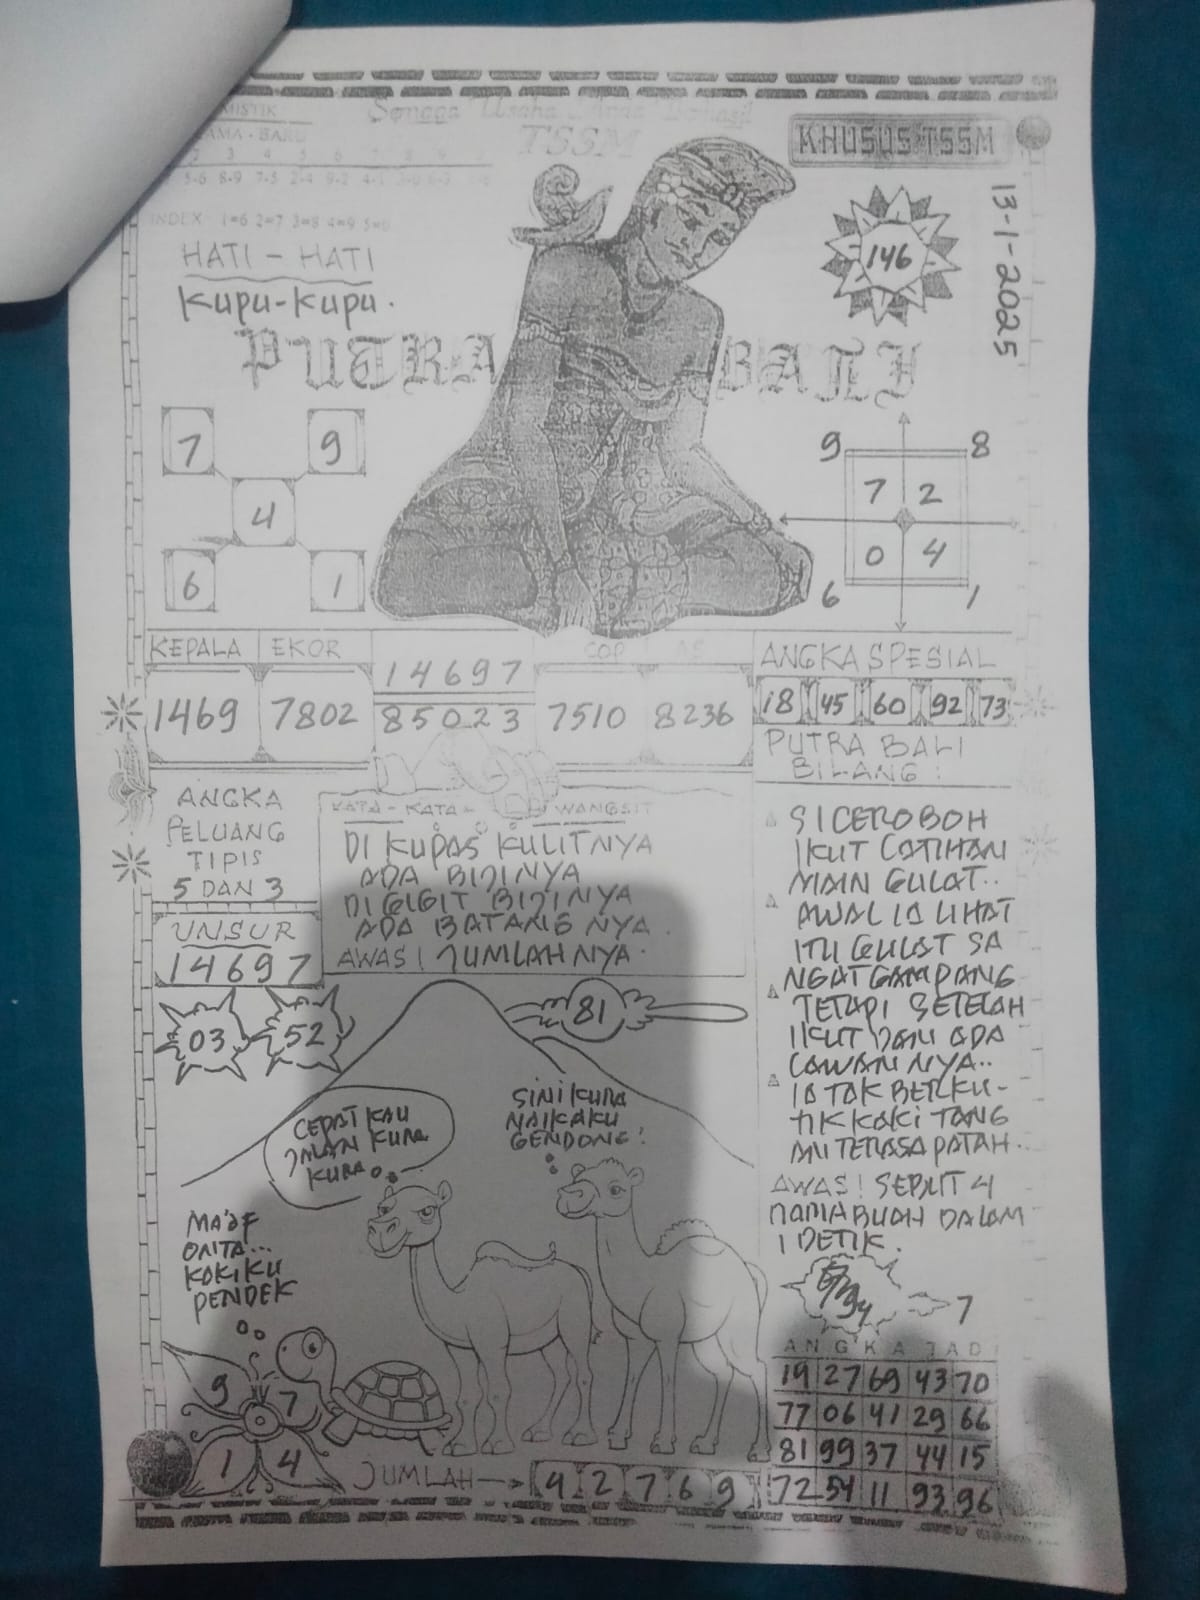 MISTIK
LAMA - BARU
2 3 4 5 6 7 8 9
5-6 8-9 7-5 2-4 9-2 4-1
INDEX 1=6 2=7 3=8 4=9 5=0
Semoga Usaha Anda Berhasil
TSSM
KHUSUS TSSM
13-1-2025
146
HATI - HATI
KUPU-KUPU.
PUTRA BALI
7 9
4
6 1
9 8
7 2
0 4
6 1
KEPALA EKOR
1469 7802
14697
85023
COP AS
7510 8236
ANGKA SPESIAL
18 45 60 92 73
PUTRA BALI
BILANG :
SI CEROBOH
IKUT LATIHAN
MAIN GULAT..
AWAL IA LIHAT
ITU GULAT SA
NGAT GAMPANG
TETAPI SETELAH
IKUT DAN ADA
LAWAN NYA..
IA TAK BERKU-
TIK KAKI TANG
AN TERASA PATAH..
AWAS! SEBUT 4
NAMA BUAH DALAM
1 DETIK.
ANGKA
PELUANG
TIPIS
5 DAN 3
UNSUR
14697
03 52
KATA - KATA - WANGSIT
DI KUPAS KULITNYA
ADA BIJINYA
DI GIGIT BIJINYA
ADA BATANG NYA.
AWAS! JUMLAHNYA.
81
CEPAT KAU
JALAN KURA
KURA
SINI KURA
NAIK AKU
GENDONG!
MA'AF
ONTA...
KAKIKU
PENDEK
9 7
1 4
JUMLAH 4 2 7 6 9
7
ANGKA JADI
19 27 69 43 70
77 06 41 29 66
81 99 37 44 15
72 54 11 93 96